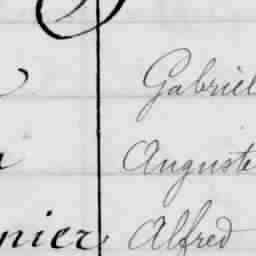 Gabriel
Auguste
nier Alfred